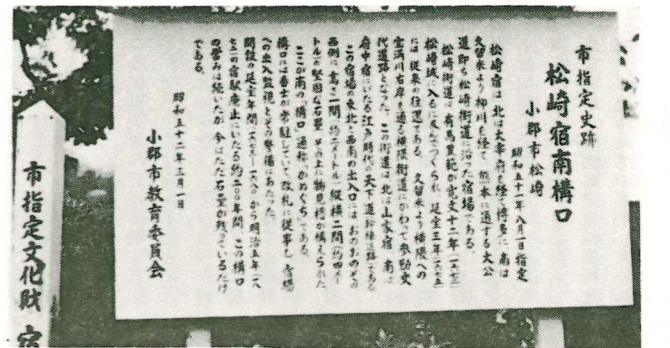 市指定史跡
松崎宿南構口
昭和五十一年八月一日指定
小郡市松崎
松崎宿は、北は太宰府を経て博多に、南は
久留米より柳川を経て、熊本に通ずる大公
道即ち松崎街道に沿った宿場である。
松崎街道は、有馬豊範が寛文十二年(一六七二)
松崎城に入るに及んでつくられ、延宝三年(一六七五
には従来の往還である、久留米より横隈への
宝満川右岸を通る横隈街道にかわって参勤交
代道路となった。この街道は、北は山家宿、南は
府中宿にいたる江戸時代の天下道(幹線道路)である
この宿場の東北と西南の出入口には、おのおのその
西側に高さ一間(約二メートル)縦横二間(約四メー
トルの堅固な石塁、その上に物見櫓が構えられた
ここが南の「構口」通称「かめぐち」である。
構口には番士が常駐していて、改札に従事し、宿場
への出入監視とその警備にあたった。
開設の延宝年間(一六七三-一六八〇)から明治五年(一八
七二)の宿駅廃止にいたる約二〇〇年間、この構口
の営みは続いたが、今はただ石塁が残っているだけ
である。
昭和五十二年三月一日
小郡市教育委員会
市指定文化財 宿